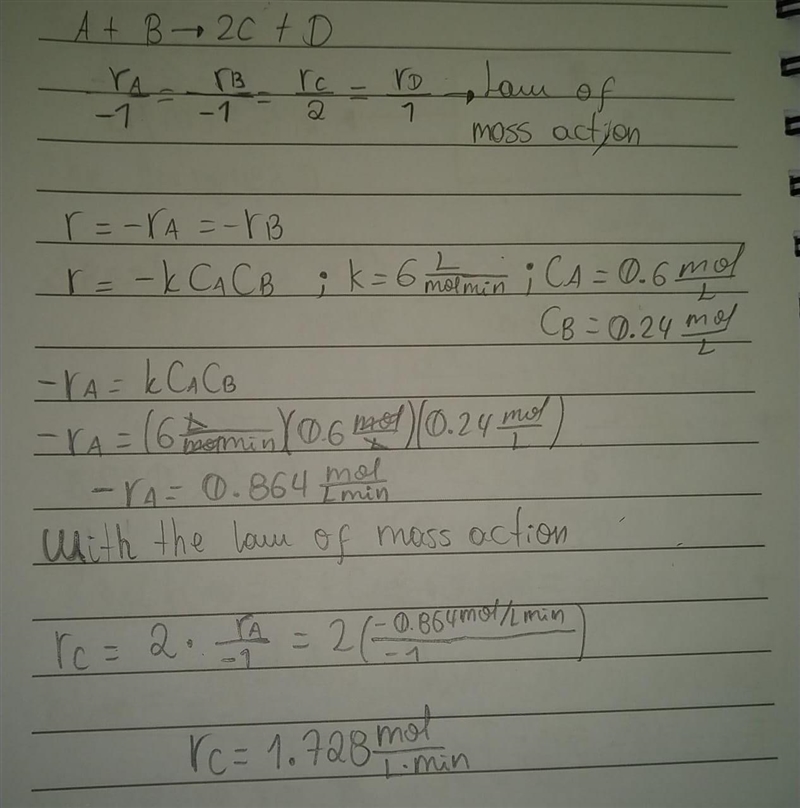 A + B → 2C + D
rA/-1 = rB/-1 = rC/2 = rD/1 → Law of
mass action
r = -rA = -rB
r = -k CA CB ; k = 6 L/mol min ; CA = 0.6 mol/L
CB = 0.24 mol/L
-rA = k CA CB
-rA = (6 L/mol min)(0.6 mol/L)(0.24 mol/L)
-rA = 0.864 mol/L min
With the law of mass action
rC = 2 · rA/-1 = 2(-0.864 mol/L min/-1)
rC = 1.728 mol/L·min